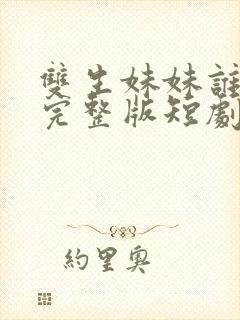 雙生妹妹誰
完整版短劇
約里奧